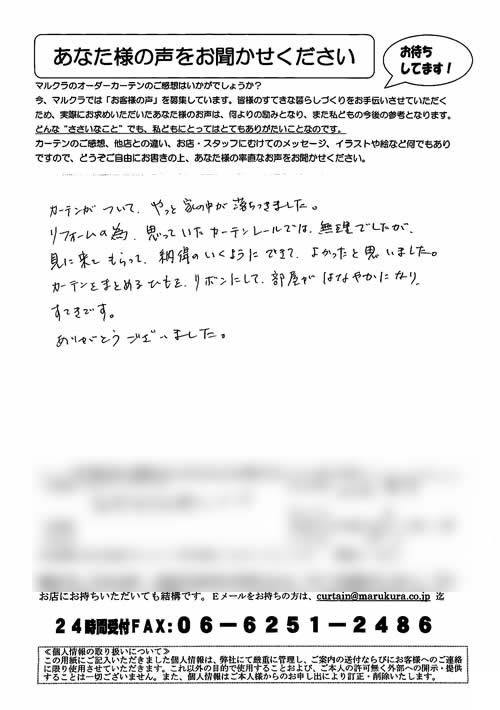 あなた様の声をお聞かせください
お待ち
してます!
マルクラのオーダーカーテンのご感想はいかがでしょうか?
今、マルクラでは「お客様の声」を募集しています。皆様のすてきな暮らしづくりをお手伝いさせていただく
ため、実際にお求めいただいたあなた様のお声は、何よりの励みとなり、また私どもの今後の参考となります。
どんな“ささいなこと”でも、私どもにとってはとてもありがたいことなのです。
カーテンのご感想、他店との違い、お店・スタッフにむけてのメッセージ、イラストや絵など何でもあり
ですので、どうぞご自由にお書きの上、あなた様の率直なお声をお聞かせください。
カーテンがついて、やっと家の中が落ちつきました。
リフォームの為、思っていたカーテンレールでは、無理でしたが、
見に来てもらって、納得のいくようにできて、よかったと思いました。
カーテンをまとめるひもを、リボンにして、部屋がはなやかになり、
すてきです。
ありがとうございました。
お店にお持ちいただいても結構です。Eメールをお持ちの方は、curtain@marukura.co.jp 迄
24時間受付FAX:06-6251-2486
≪個人情報の取り扱いについて≫
この用紙にご記入いただきました個人情報は、弊社にて厳重に管理し、ご案内の送付ならびにお客様へのご連絡
に限り使用させていただきます。これ以外の目的で使用することおよび、ご本人の許可無く外部への開示・提供
することは一切ございません。また、個人情報はご本人様からのお申し出により訂正・削除いたします。